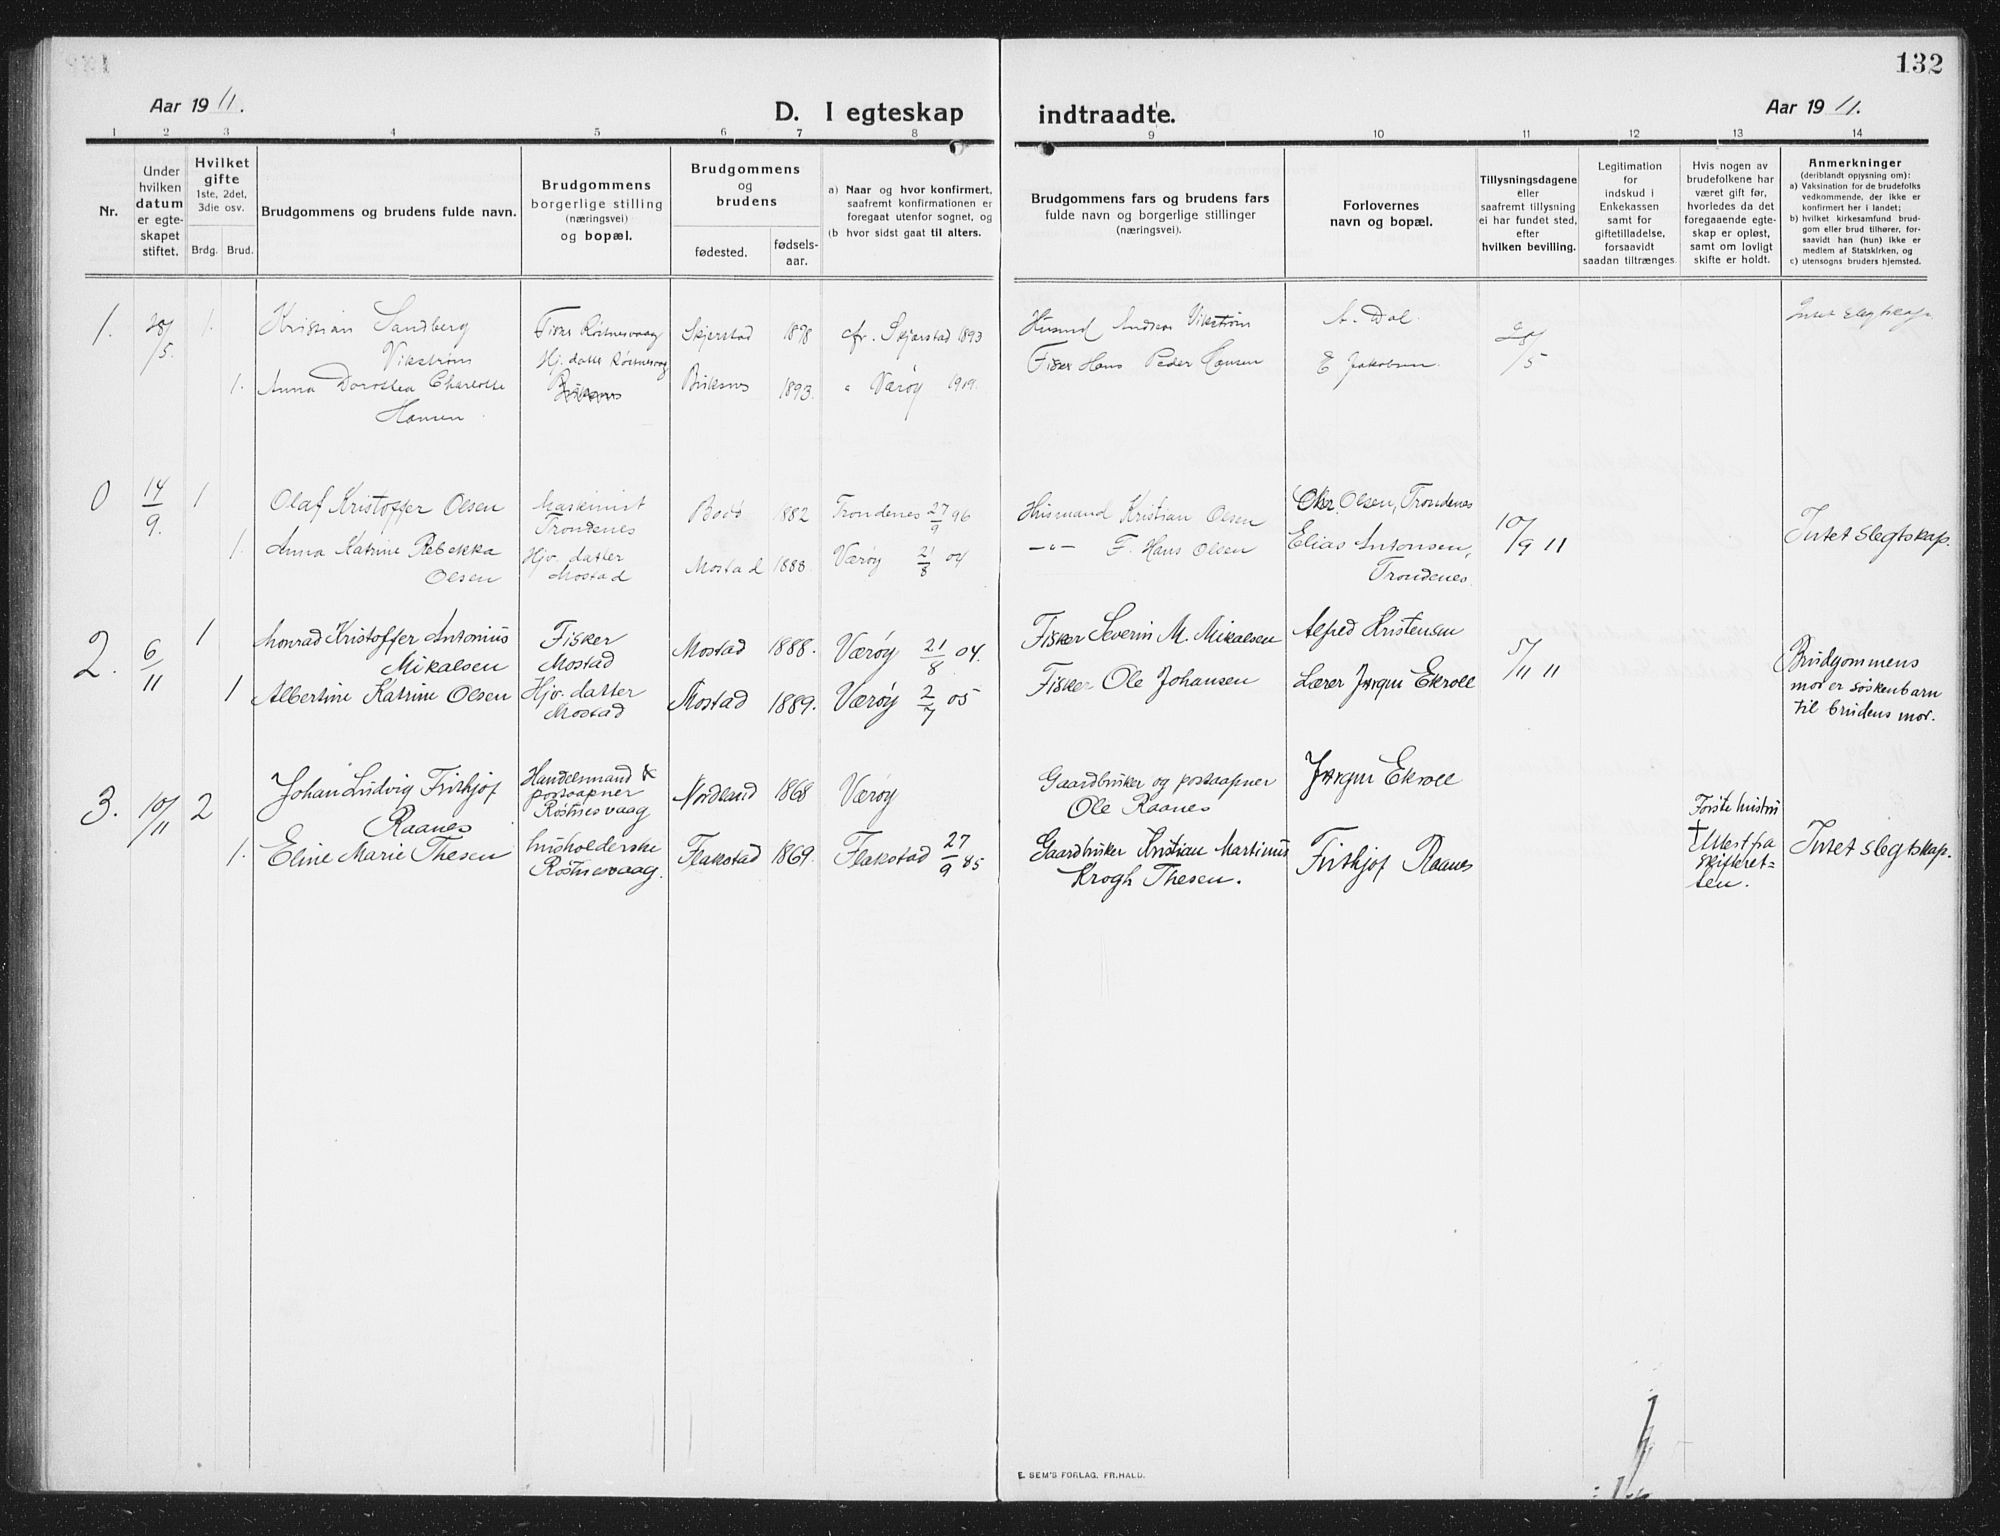 132
Aar 19 11.
D. I egteskap indtraadte.
Aar 19 11.
1 2 3 4 5 6 7 8 9 10 11 12 13 14
Nr.
Under
hvilken
datum
er egte-
skapet
stiftet.
Hvilket
gifte
1ste, 2det,
3die osv.
Brdg. Brud.
Brudgommens og brudens fulde navn.
Brudgommens
borgerlige stilling
(næringsvei)
og bopæl.
Brudgommens
og
brudens
fødested.
fødsels-
aar.
a) Naar og hvor konfirmert,
saafremt konfirmationen er
foregaat utenfor sognet, og
(b hvor sidst gaat til alters.
Brudgommens fars og brudens fars
fulde navn og borgerlige stillinger
(næringsvei).
Forlovernes
navn og bopæl.
Tillysningsdagene
eller
saafremt tillysning
ei har fundet sted,
efter
hvilken bevilling.
Legitimation
for
indskud i
Enkekassen
samt for
giftetilladelse,
forsaavidt
saadan tiltrænges.
Hvis nogen av
brudefolkene har
været gift før,
hvorledes da det
foregaaende egte-
skap er opløst,
samt om lovligt
skifte er holdt.
Anmerkninger
(deriblandt opysning om):
a) Vaksination for de brudefolks
vedkommende, der ikke er
konfirmert her i landet;
b) hvilket kirkesamfund brud-
gom eller brud tilhører, for-
saavidt han (hun) ikke er
medlem av Statskirken, og
c) utensogns bruders hjemsted.
1. 28/5. 1. Kristian Sandberg
Vikstrøm
Fisker Røstnesvaag Skjerstad 1878 cfr. Skjerstad 1893 Husmd Andreas Vikstrøm A. Dal 28/5 Intet Slegtskap.
1. Anna Dorothea Charlotte
Hansen
Hj. datter Røstnesvaag Buksnes 1893. " Værøy 1909. Fisker Hans Peder Hansen E Jakobsen.
0 14/9. 1 Olaf Kristoffer Olsen
Maskinist
Trondenes
Bodø 1882 Trondenes 27/9 96 Husmand Kristian Olsen Olsen, Trondenes 10/9 11 Intet slegtskap.
1. Anna Katrine Rebekka
Olsen
Hjv. datter
Mostad
Mostad 1888. Værøy 21/8 04 —"— F. Hans Olsen Elias Antonsen,
Trondenes.
2. 6/11 1 Konrad Kristoffer Antonius
Mikalsen
Fisker
Mostad
Mostad 1888. Værøy 21/8 04. Fisker Severin M. Mikalsen Alfred Kristensen 5/11 11
Brudgommens
mor er søskenbarn
til brudens mor.
1 Albertine Katrine Olsen
Hjv. datter
Mostad
Mostad 1889. Værøy 2/7 05 Fisker Ole Johansen Lærer Jørgen Ekroll
3. 10/11 2 Johan Ludvig Frithjof
Raanes
Handelsmand &
postaapner
Røstnesvaag
Nordland 1868 Værøy
Gaardbruker og postaapner
Ole Raanes
Jørgen Ekroll
Første hustru
†
Attest fra
skifteret-
ten.
Intet slegtskap.
1. Eline Marie Thesen
husholderske
Røstnesvaag.
Flakstad 1869. Flakstad 27/9 85
Gaardbruker Kristian Martinus
Krogh Thesen.
Frithjof Raanes
E. SEM'S FORLAG. FR.HALD.